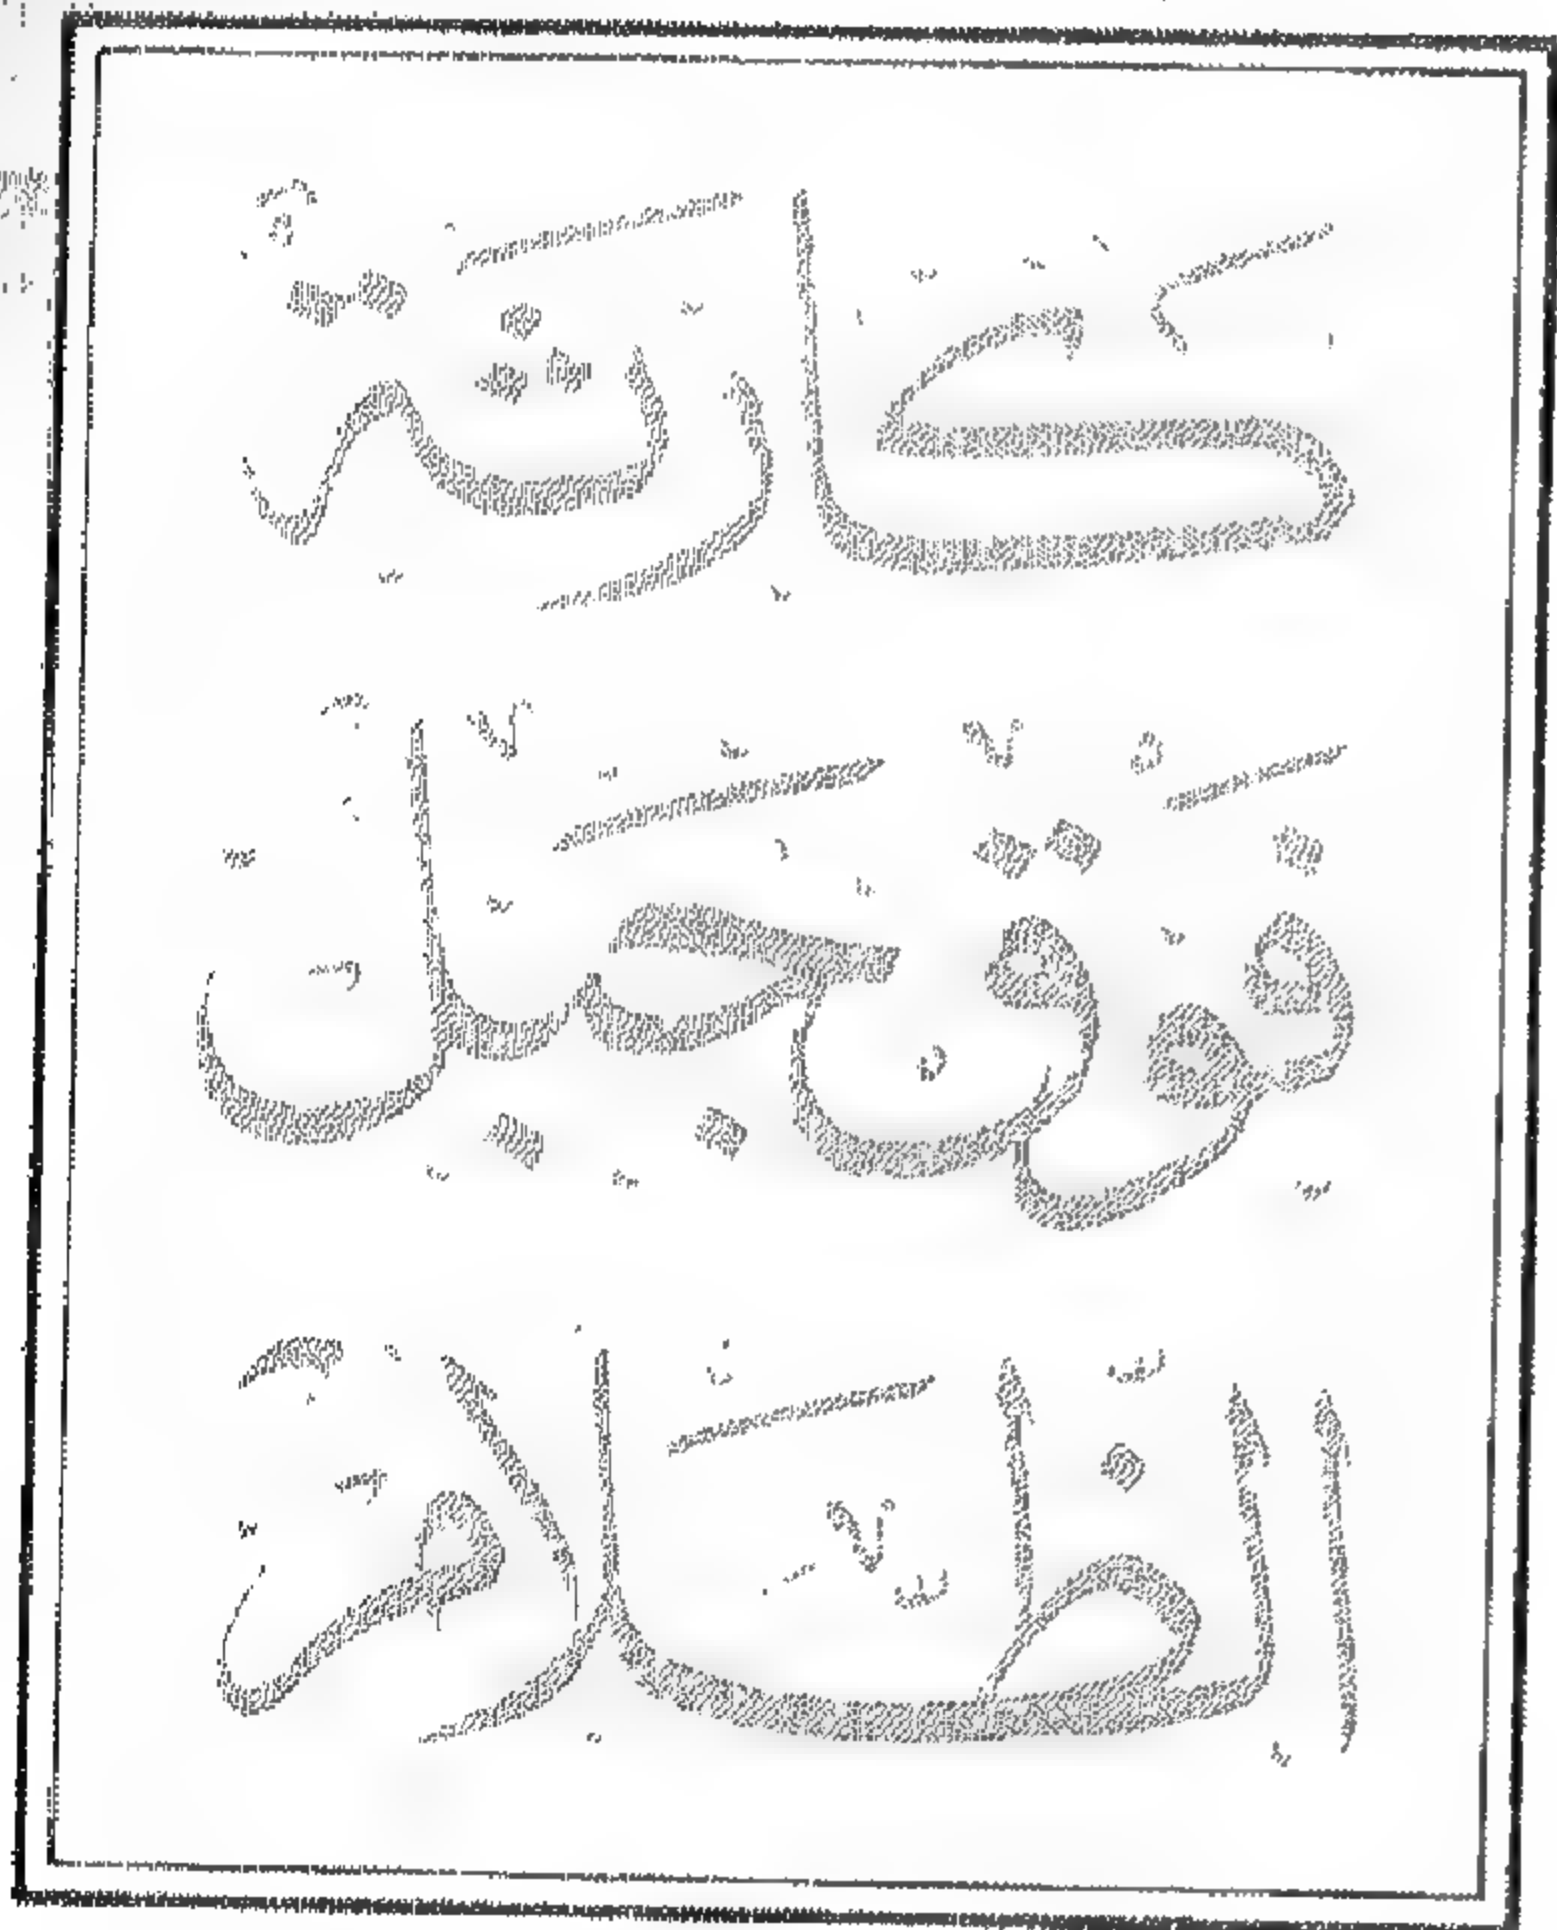 كارثة
فوق جبل
الظلام